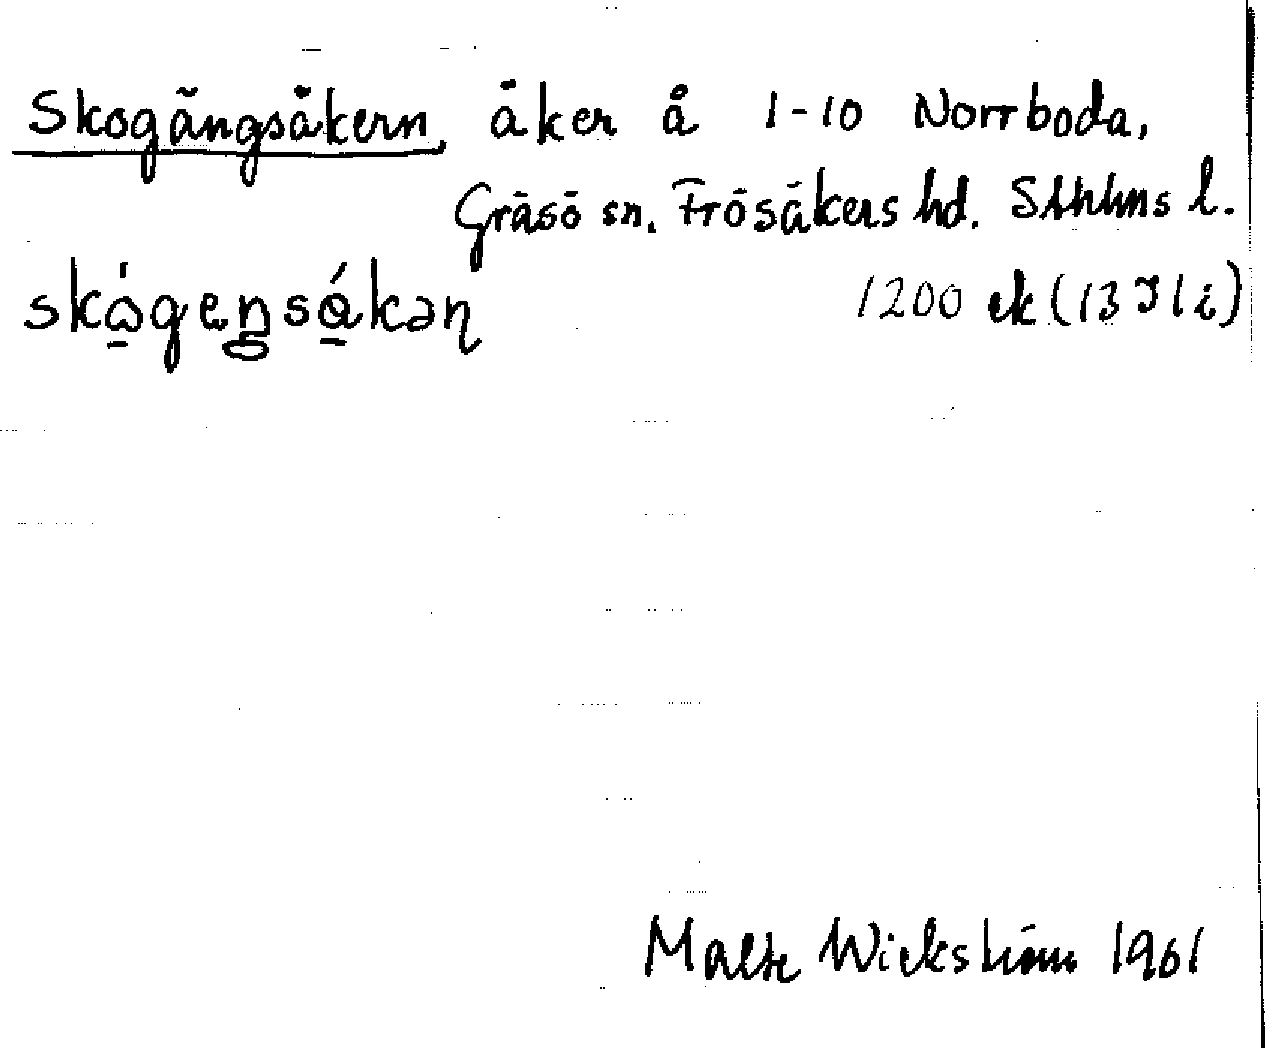 Skogängsåkern, åker å 1-10 Norrboda,
Gräsö sn. Frösåkers hd. Sthlms l.
skògeŋsákəɳ 1200 ek (13I 1i)
Malte Wickström 1961